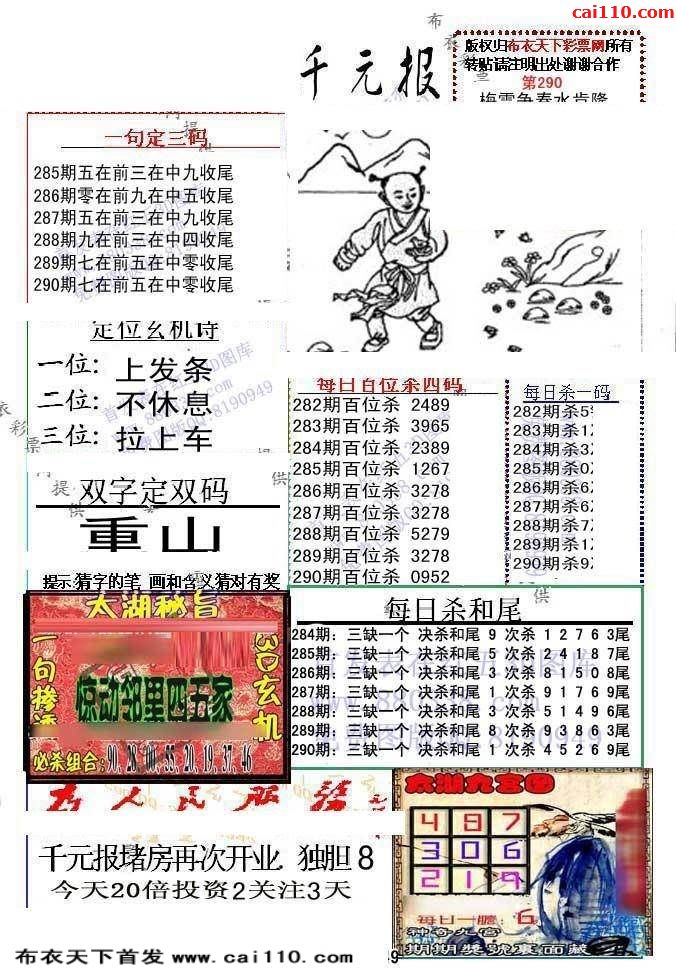 cai110.com
千元报
版权归布衣天下彩票网所有
转贴请注明出处谢谢合作
第290
梅雪争春水肯降
一句定三码
285期五在前三在中九收尾
286期零在前九在中五收尾
287期五在前三在中九收尾
288期九在前三在中四收尾
289期七在前五在中零收尾
290期七在前五在中零收尾
定位玄机诗
一位: 上发条
二位: 不休息
三位: 拉上车
双字定双码
重山
提示:猜字的笔 画和含义猜对有奖
每日百位杀四码
282期百位杀 2489
283期百位杀 3965
284期百位杀 2389
285期百位杀 1267
286期百位杀 3278
287期百位杀 3278
288期百位杀 5279
289期百位杀 3278
290期百位杀 0952
每日杀一码
282期杀5
283期杀1
284期杀3
285期杀0
286期杀6
287期杀6
288期杀7
289期杀1
290期杀9
太湖秘旨
3D玄机
惊动邻里四五家
必杀组合: 90, 28, 00, 55, 20, 19, 37, 46
每日杀和尾
284期: 三缺一个 决杀和尾 9 次杀 1 2 7 6 3尾
285期: 三缺一个 决杀和尾 5 次杀 2 4 1 8 7尾
286期: 三缺一个 决杀和尾 3 次杀 6 1 5 0 8尾
287期: 三缺一个 决杀和尾 1 次杀 9 1 7 6 9尾
288期: 三缺一个 决杀和尾 3 次杀 5 1 4 9 6尾
289期: 三缺一个 决杀和尾 8 次杀 9 3 8 6 3尾
290期: 三缺一个 决杀和尾 1 次杀 4 5 2 6 9尾
为人民服务
千元报堵房再次开业 独胆 8
今天20倍投资2关注3天
太湖九宫图
4 8 7
3 0 6
2 1 9
每日一胆: 6
神奇九宫
期期奖号里面藏
布衣天下首发 www.cai110.com